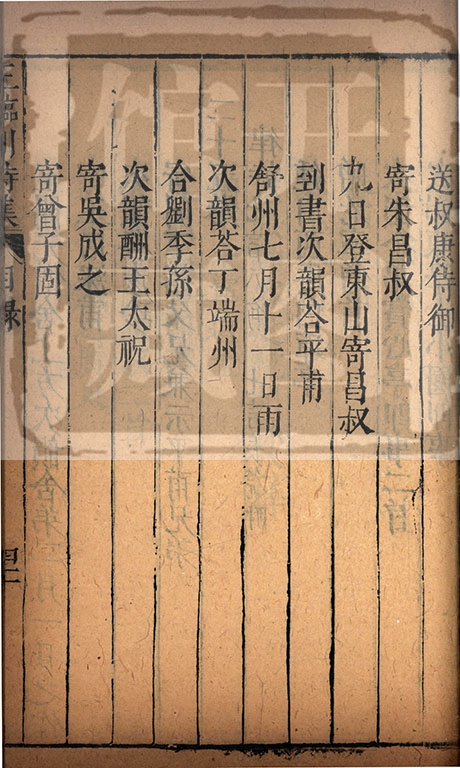 送叔康侍御
寄朱昌叔
九日登東山寄昌叔
到書次韻荅平甫
舒州七月十一日雨
次韻荅丁端州
合劉季孫
次韻酬王太祝
寄吳成之
寄曾子固
王臨川詩集 目錄 四二